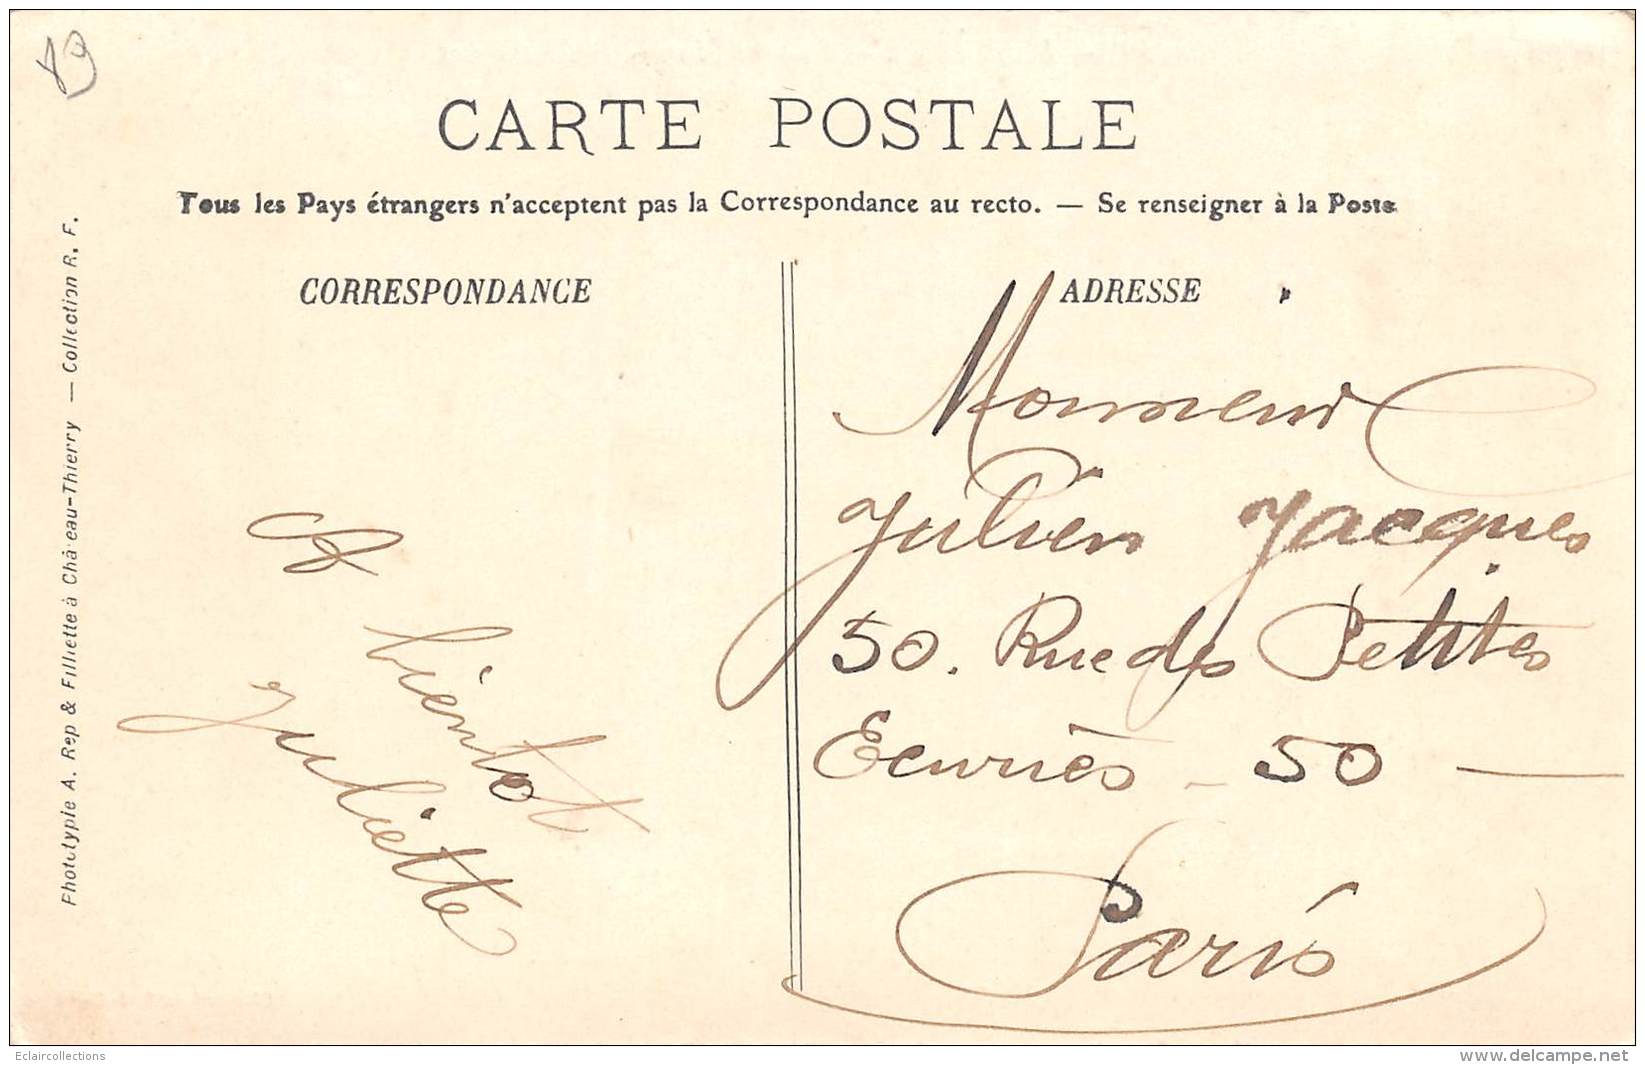 89
CARTE POSTALE
Tous les Pays étrangers n'acceptent pas la Correspondance au recto. — Se renseigner à la Poste
Phototypie A. Rep & Filliette à Château-Thierry — Collection R. F.
CORRESPONDANCE
A
bientot
Juliette
ADRESSE
Monsieur
Julien Jacques
50. Rue des Petites
Ecuries - 50 —
Paris
Eclaircollections
www.delcampe.net